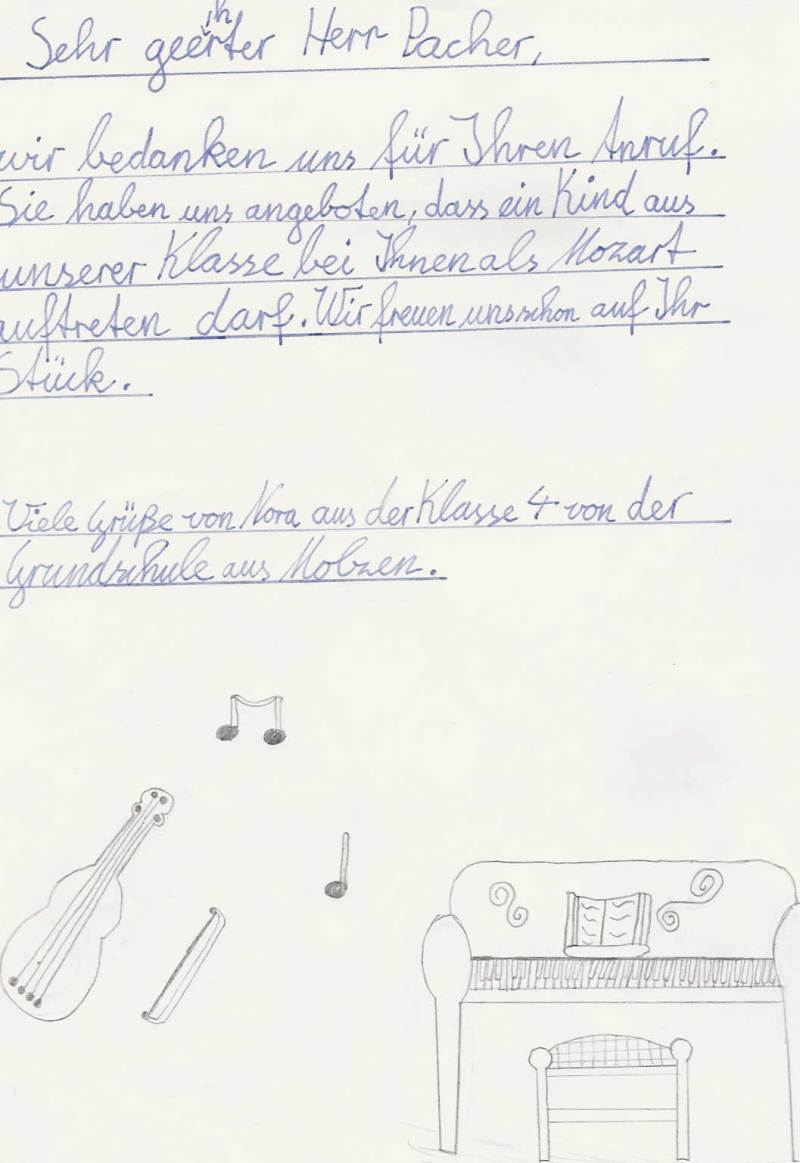 Sehr geehrter Herr Pacher,
wir bedanken uns für Ihren Anruf.
Sie haben uns angeboten, dass ein Kind aus
unserer Klasse bei Ihnen als Mozart
auftreten darf. Wir freuen uns schon auf Ihr
Stück.
Viele Grüße von Nora aus der Klasse 4 von der
Grundschule aus Molzen.